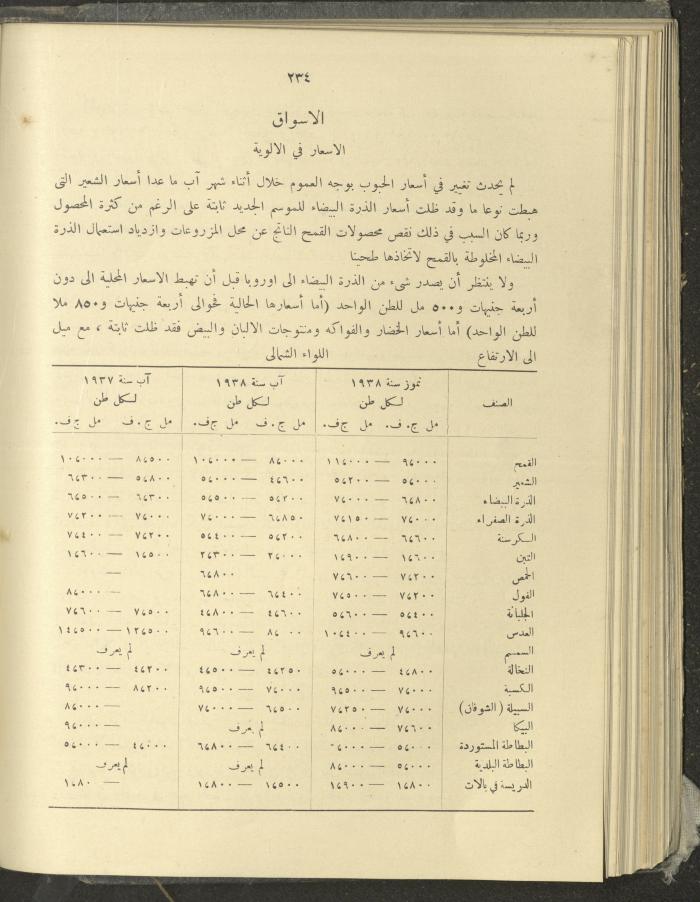 ٢٣٤
الاسواق
الاسعار في الالوية
لم يحدث تغيير في أسعار الحبوب بوجه العموم خلال أثناء شهر آب ما عدا أسعار الشعير التى
هبطت نوعا ما وقد ظلت أسعار الذرة البيضاء للموسم الجديد ثابتة على الرغم من كثرة المحصول
وربما كان السبب في ذلك نقص محصولات القمح الناتج عن محل المزروعات وازدياد استعمال الذرة
البيضاء المخلوطة بالقمح لاتخاذها طحينا
ولا ينتظر أن يصدر شىء من الذرة البيضاء الى اوروبا قبل أن تهبط الاسعار المحلية الى دون
أربعة جنيهات و٥٠٠ مل للطن الواحد (أما أسعارها الحالية فحوالى أربعة جنيهات و٨٥٠ ملا
للطن الواحد) أما أسعار الخضار والفواكه ومنتوجات الالبان والبيض فقد ظلت ثابتة ، مع ميل
الى الارتفاع
اللواء الشمالى
الصنف تموز سنة ١٩٣٨ آب سنة ١٩٣٨ آب سنة ١٩٣٧
لكل طن لكل طن لكل طن
مل ج.ف. مل ج.ف. مل ج.ف. مل ج.ف. مل ج.ف مل ج.ف.
القمح ٩٤٠٠٠ — ١١٤٠٠٠ ٨٤٠٠٠ — ١٠٤٠٠٠ ٨٤٥٠٠ — ١٠٤٠٠٠
الشعير ٥٤٠٠٠ — ٥٤٢٠٠ ٤٤٦٠٠ — ٥٤٠٠٠ ٥٤٨٠٠ — ٦٤٣٠٠
الذرة البيضاء ٦٤٨٠٠ — ٧٤٠٠٠ ٥٤٢٠٠ — ٥٤٥٠٠ ٦٤٣٠٠ — ٦٤٥٠٠
الذرة الصفراء ٧٤٠٠٠ — ٧٤١٥٠ ٦٤٨٥٠ — ٧٤٠٠٠ ٧٤٠٠٠ — ٧٤٢٠٠
الكرسنة ٦٤٦٠٠ — ٦٤٨٠٠ ٥٤٢٠٠ — ٥٤٤٠٠ ٧٤٢٠٠ — ٧٤٤٠٠
التبن ١٤٦٠٠ — ١٤٩٠٠ ٢٤٠٠٠ — ٢٤٣٠٠ ١٤٥٠٠ — ١٤٦٠٠
الحمص ٧٤٢٠٠ — ٧٤٦٠٠ ٦٤٨٠٠ —
الفول ٧٤٢٠٠ — ٧٤٥٠٠ ٦٤٤٠٠ — ٦٤٨٠٠ — ٨٤٠٠٠
الجلبانة ٥٤٤٠٠ — ٥٤٦٠٠ ٤٤٦٠٠ — ٤٤٨٠٠ ٧٤٥٠٠ — ٧٤٦٠٠
العدس ٩٤٦٠٠ — ١٠٤٤٠٠ ٨٤٠٠ — ٩٤٦٠٠ ١٢٤٥٠٠ — ١٤٤٥٠٠
السمسم لم يعرف لم يعرف لم يعرف
النخالة ٤٤٨٠٠ — ٥٤٠٠٠ ٤٤٢٥٠ — ٤٤٥٠٠ ٤٤٢٠٠ — ٤٤٣٠٠
الكسبة ٧٤٠٠٠ — ٩٤٥٠٠ ٧٤٠٠٠ — ٩٤٥٠٠ ٨٤٢٠٠ — ٩٤٠٠٠
السبيلة (الشوفان) ٧٤٠٠٠ — ٧٤٢٥٠ ٦٤٥٠٠ — ٧٤٠٠٠ — ٨٤٠٠٠
البيكا ٧٤٦٠٠ — ٨٤٠٠٠ لم يعرف — ٩٤٠٠٠
البطاطة المستوردة ٥٤٠٠٠ — ٦٤٤٠٠ — ٦٤٨٠٠ ٤٤٠٠٠ — ٥٤٠٠٠
البطاطة البلدية ٥٤٠٠٠ — ٨٤٠٠٠ لم يعرف لم يعرف
الدريسة في بالات ١٤٨٠٠ — ١٤٩٠٠ ١٤٥٠٠ — ١٤٨٠٠ — ١٤٨٠